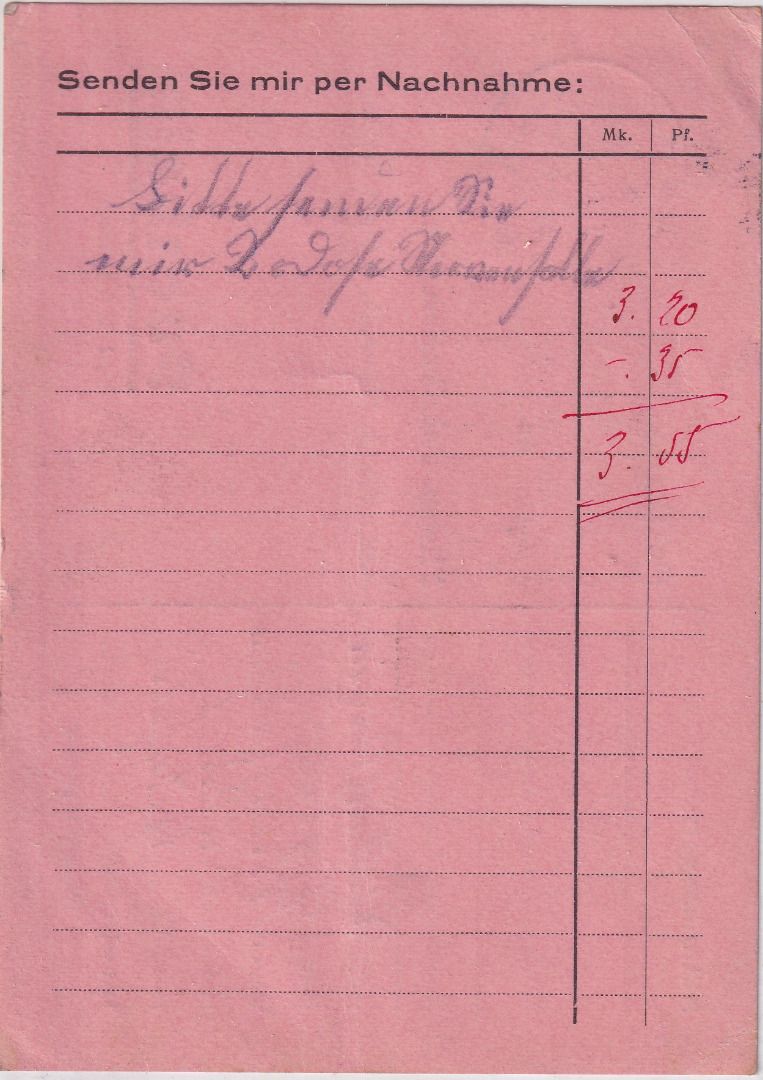 Senden Sie mir per Nachnahme:
Mk. Pf.
Bitte senden Sie
mir
3. 20
–. 35
3. 55